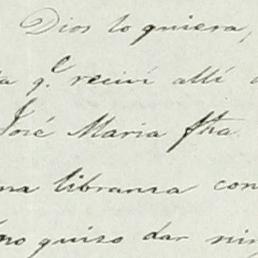 Dios lo quiera,
qe. recivi allí
José Maria
na libranza con
no quiso dar nin